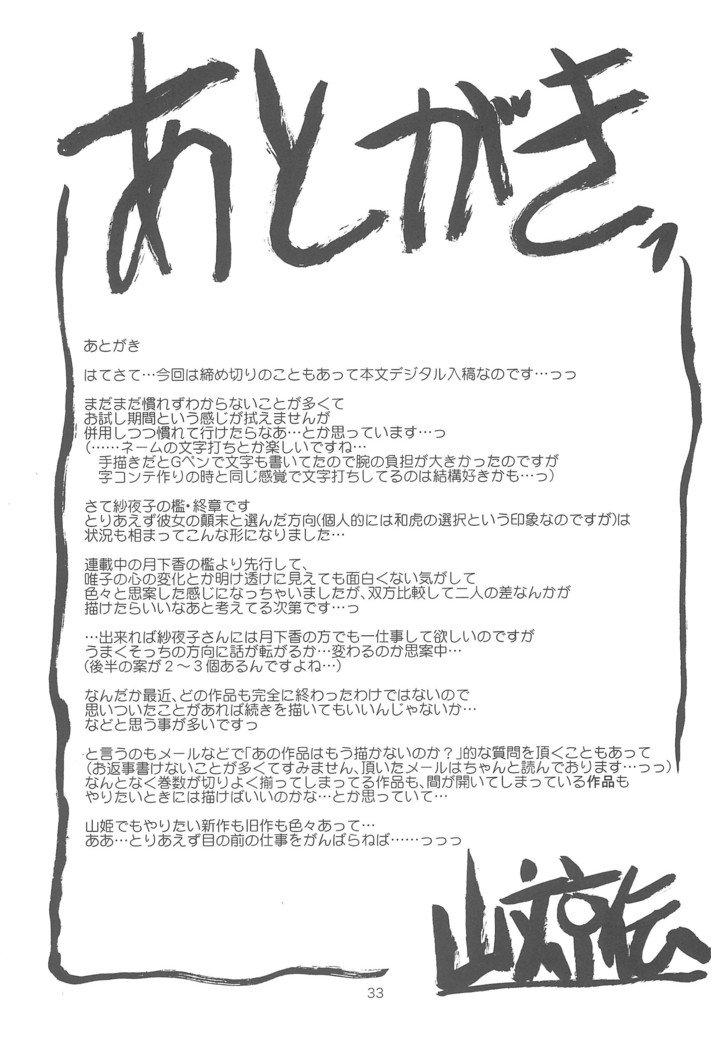 あとがき
あとがき
はてさて…今回は締め切りのこともあって本文デジタル入稿なのです…っっ
まだまだ慣れずわからないことが多くて
お試し期間という感じが拭えませんが
併用しつつ慣れて行けたらなあ…とか思っています…っ
(……ネームの文字打ちとか楽しいですね…
手描きだとGペンで文字も書いてたので腕の負担が大きかったのですが
字コンテ作りの時と同じ感覚で文字打ちしてるのは結構好きかも…っ)
さて紗夜子の檻・終章です
とりあえず彼女の顛末と選んだ方向(個人的には和虎の選択という印象なのですが)は
状況も相まってこんな形になりました…
連載中の月下香の檻より先行して、
唯子の心の変化とか明け透けに見えても面白くない気がして
色々と思案した感じになっちゃいましたが、双方比較して二人の差なんかが
描けたらいいなあと考えてる次第です…っ
…出来れば紗夜子さんには月下香の方でも一仕事して欲しいのですが
うまくそっちの方向に話が転がるか…変わるのか思案中…
(後半の案が2～3個あるんですよね…)
なんだか最近、どの作品も完全に終わったわけではないので
思いついたことがあれば続きを描いてもいいんじゃないか…
などと思う事が多いですっ
と言うのもメールなどで「あの作品はもう描かないのか?」的な質問を頂くこともあって
(お返事書けないことが多くてすみません、頂いたメールはちゃんと読んでおります…っっ)
なんとなく巻数が切りよく揃ってしまってる作品も、間が開いてしまっている作品も
やりたいときには描けばいいのかな…とか思っていて…
山姫でもやりたい新作も旧作も色々あって…
ああ…とりあえず目の前の仕事をがんばらねば……っっっ
山文京伝
33